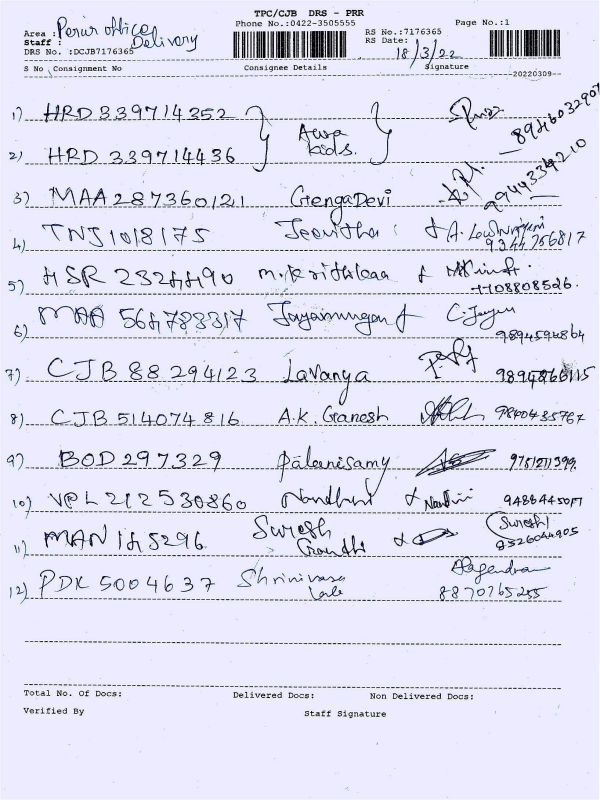 TPC/CJB DRS - PRR
Phone No.:0422-3505555
Page No.:1
Area : Perur office
Staff : Delivery
DRS No. :DCJB7176365
RS No.:7176365
RS Date: 18/3/22
S No Consignment No Consignee Details Signature
20220309--
1) HRD 339714352
Awa kids. 8946032907
2) HRD 339714436
3) MAA 287360121 GengaDevi 9944334210
4) TNJ 1018175 Jeevitha & A. 9344756817
5) HSR 2324490 m.krithikaa & 7708808526.
6) MAA 564783317 Jayamurugan & C. Jayam 9894594864
7) CJB 88294123 Lavanya 9894866115
8) CJB 514074816 A.K. Ganesh 9840435767
9) BOD 297329 palanisamy 9751211399
10) VPL 212530860 Nandhini & Nandini
11) MAN 145296 Suresh Gandhi & (Suresh) 9526044905
12) PDK 5004637 Shrinivasa Rajendran 8870765255
Total No. Of Docs: Delivered Docs: Non Delivered Docs:
Verified By Staff Signature